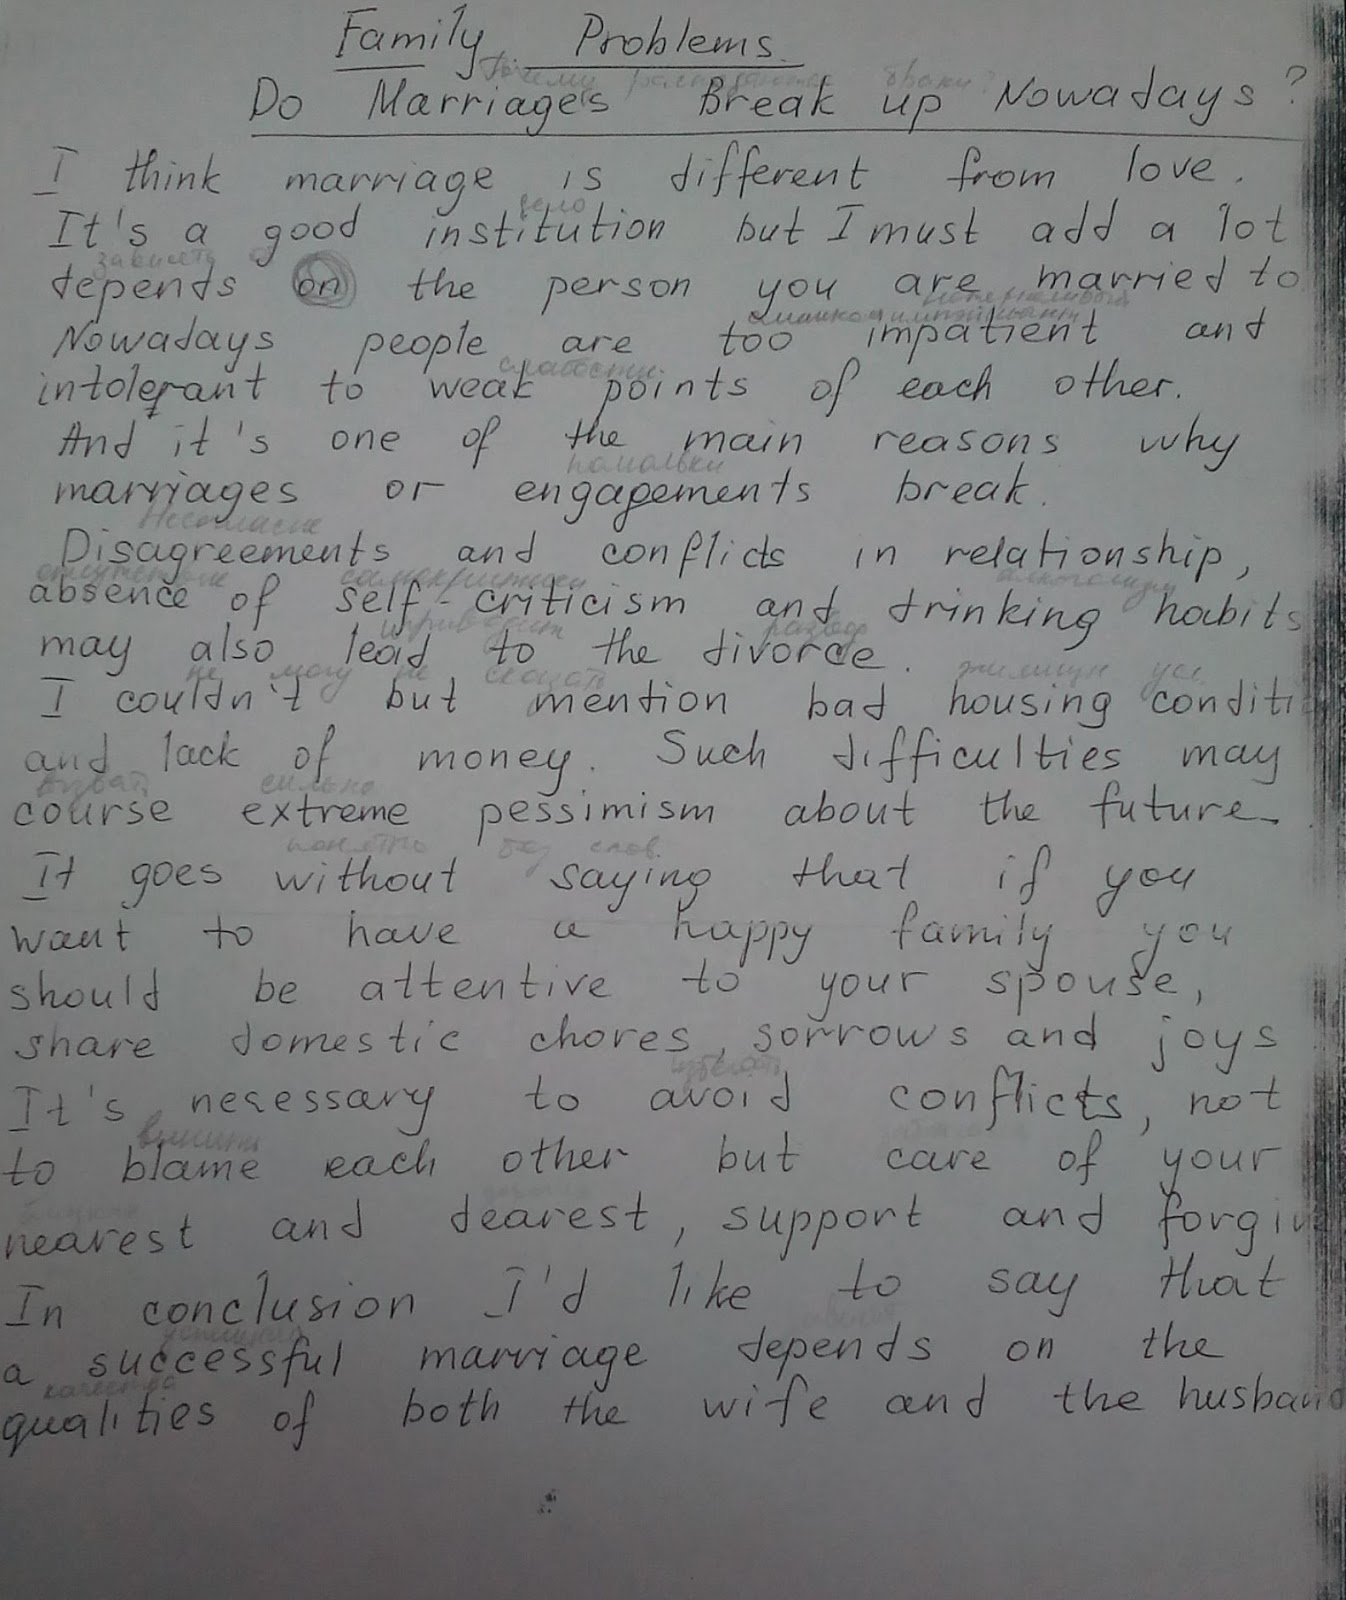 Family Problems.
Почему распадаются браки?
Do Marriages Break up Nowadays?
I think marriage is different from love.
дело
It's a good institution but I must add a lot
зависеть
depends on the person you are married to
нетерпеливый
Nowadays people are too impatient and
слабости
intolerant to weak points of each other.
And it's one of the main reasons why
помолвки
marriages or engagements break.
Несогласие
Disagreements and conflicts in relationship,
отсутствие самокритики
absence of self-criticism and drinking habits
приводит развод
may also lead to the divorce.
не могу не сказать жилищн усл.
I couldn't but mention bad housing conditi
and lack of money. Such difficulties may
вызвать сильно
course extreme pessimism about the future.
понятно без слов
It goes without saying that if you
want to have a happy family you
should be attentive to your spouse,
share domestic chores, sorrows and joys
избегать
It's necessary to avoid conflicts, not
винить
to blame each other but care of your
nearest and dearest, support and forgiv
In conclusion I'd like to say that
успешный
a successful marriage depends on the
качества
qualities of both the wife and the husband